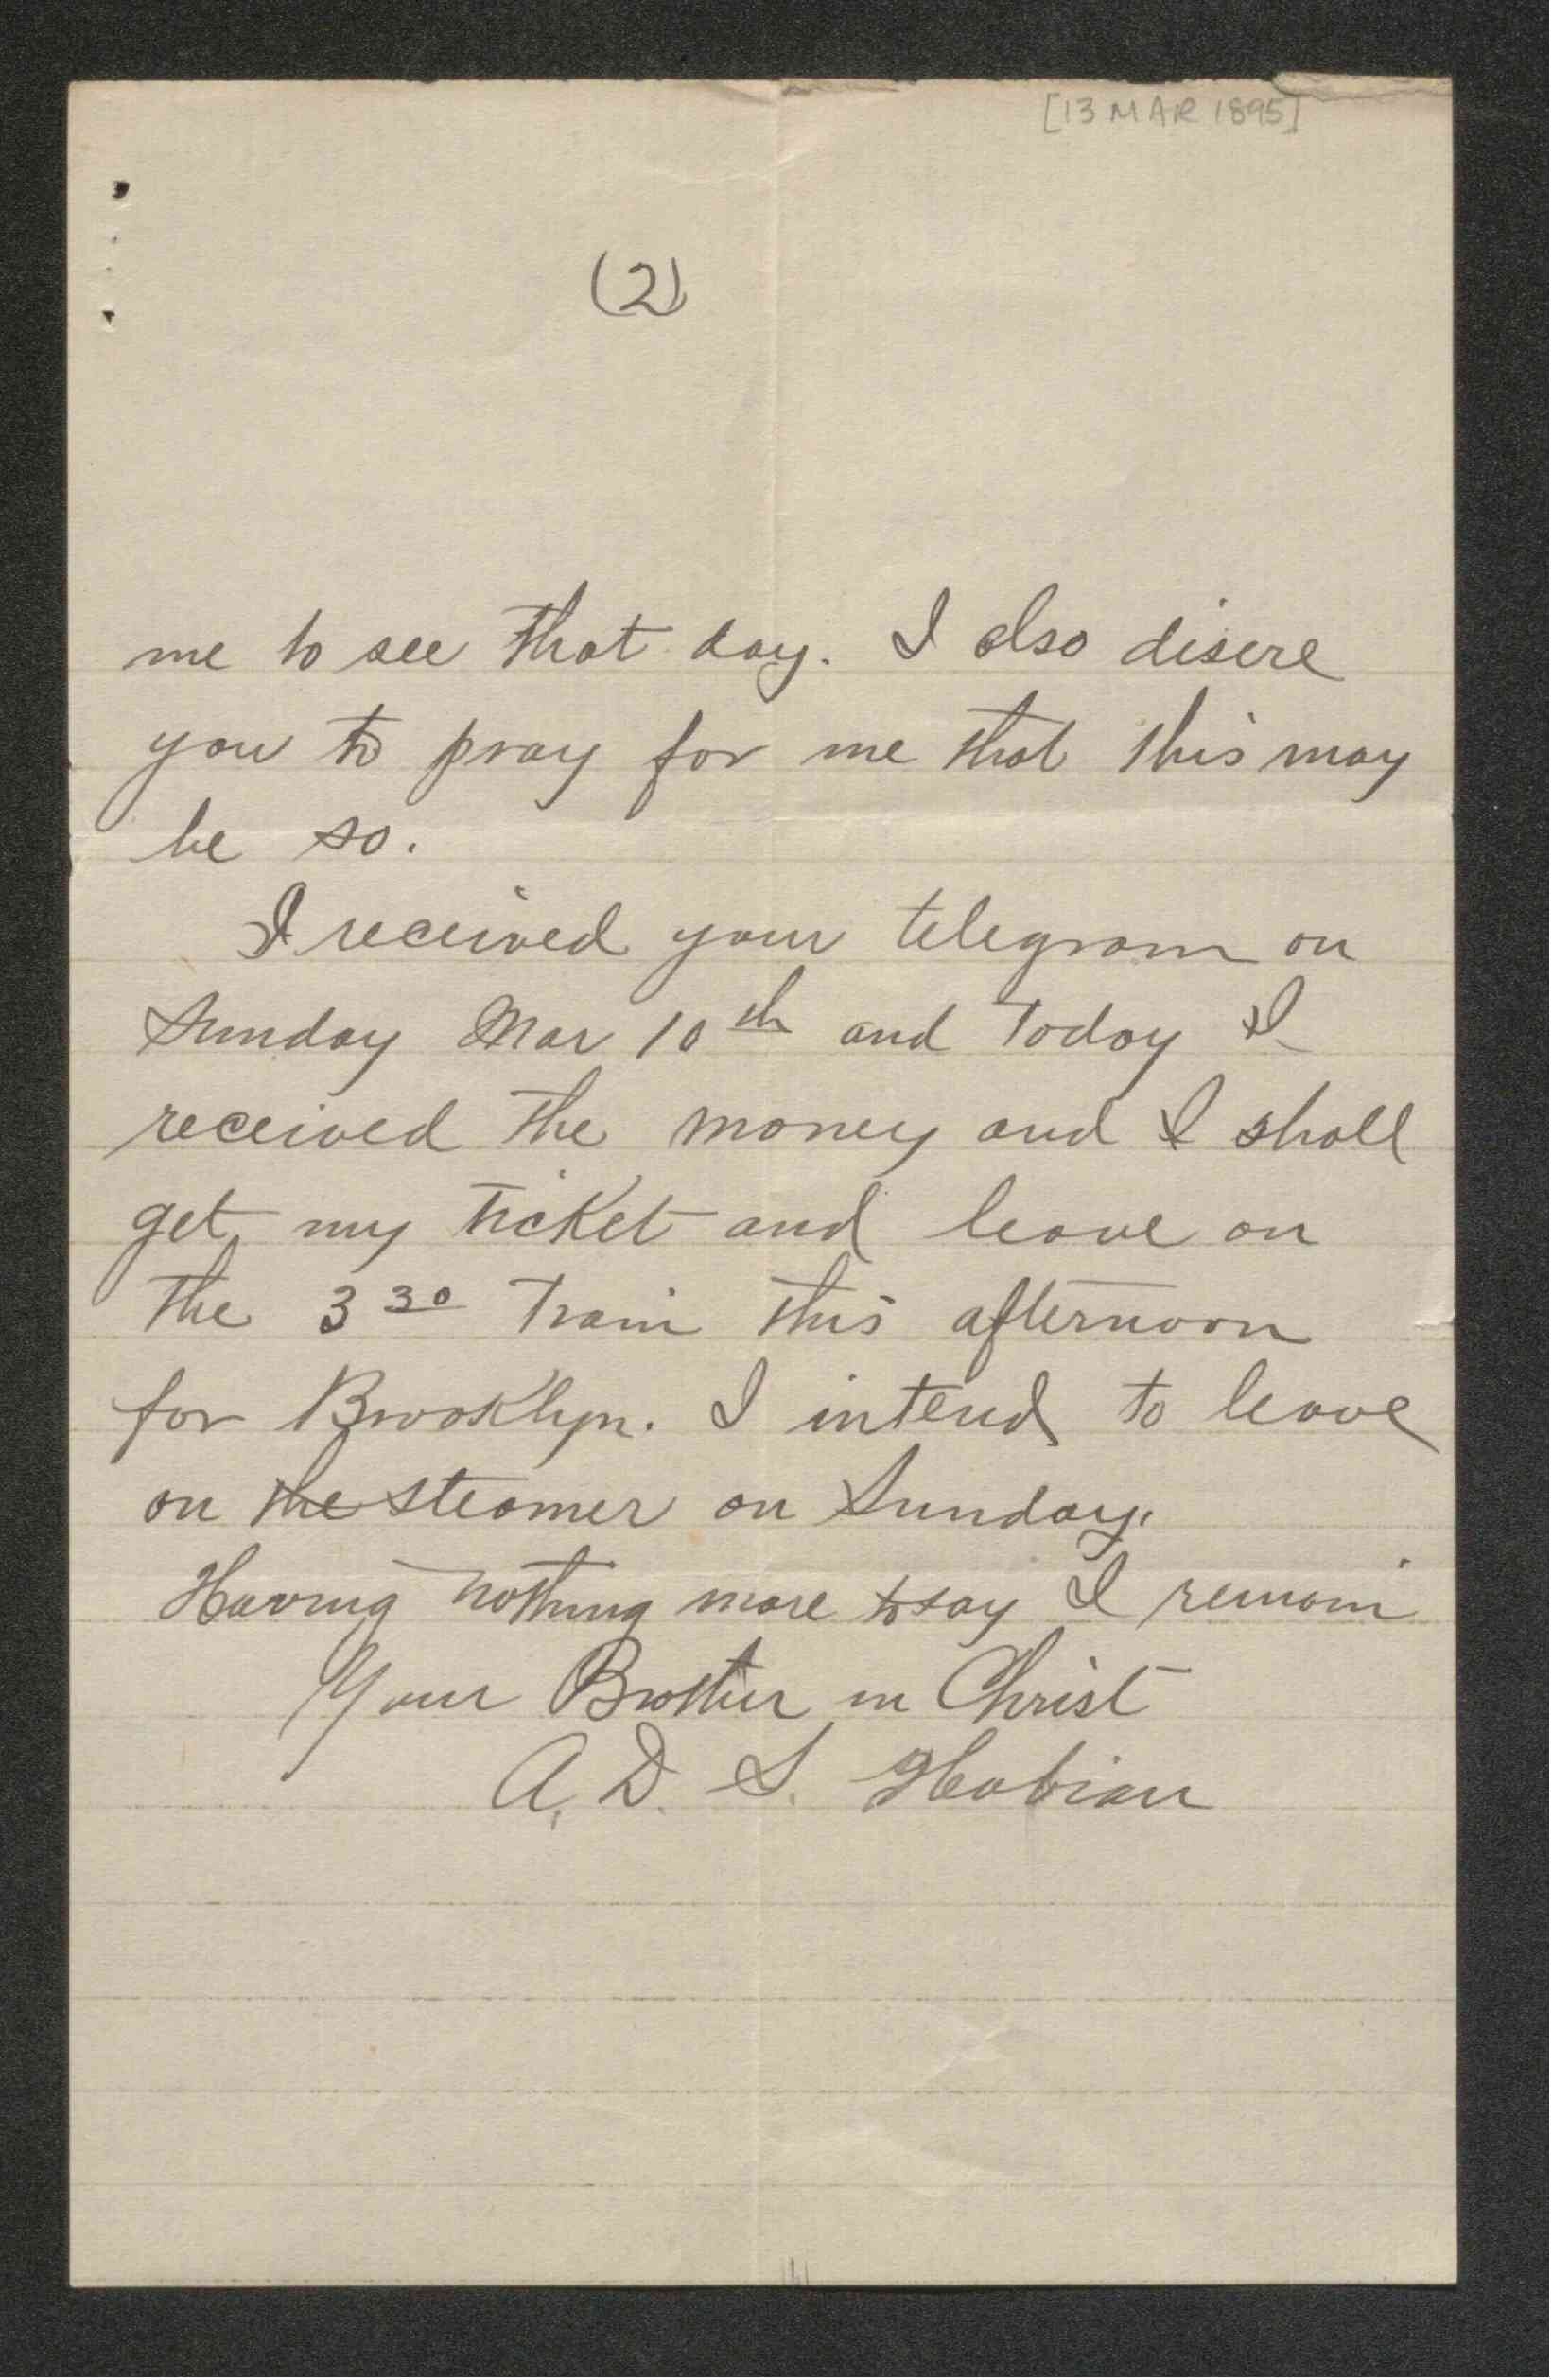 [13 MAR 1895]
(2)
me to see that day. I also disere
you to pray for me that this may
be so.
I received your telegram on
Sunday Mar 10th and Today I
received the money and I shall
get my ticket and leave on
the 3 30 Train this afternoon
for Brooklyn. I intend to leave
on the steamer on Sunday.
Having nothing more to say I remain
Your Brother in Christ
A. D. S. Habian